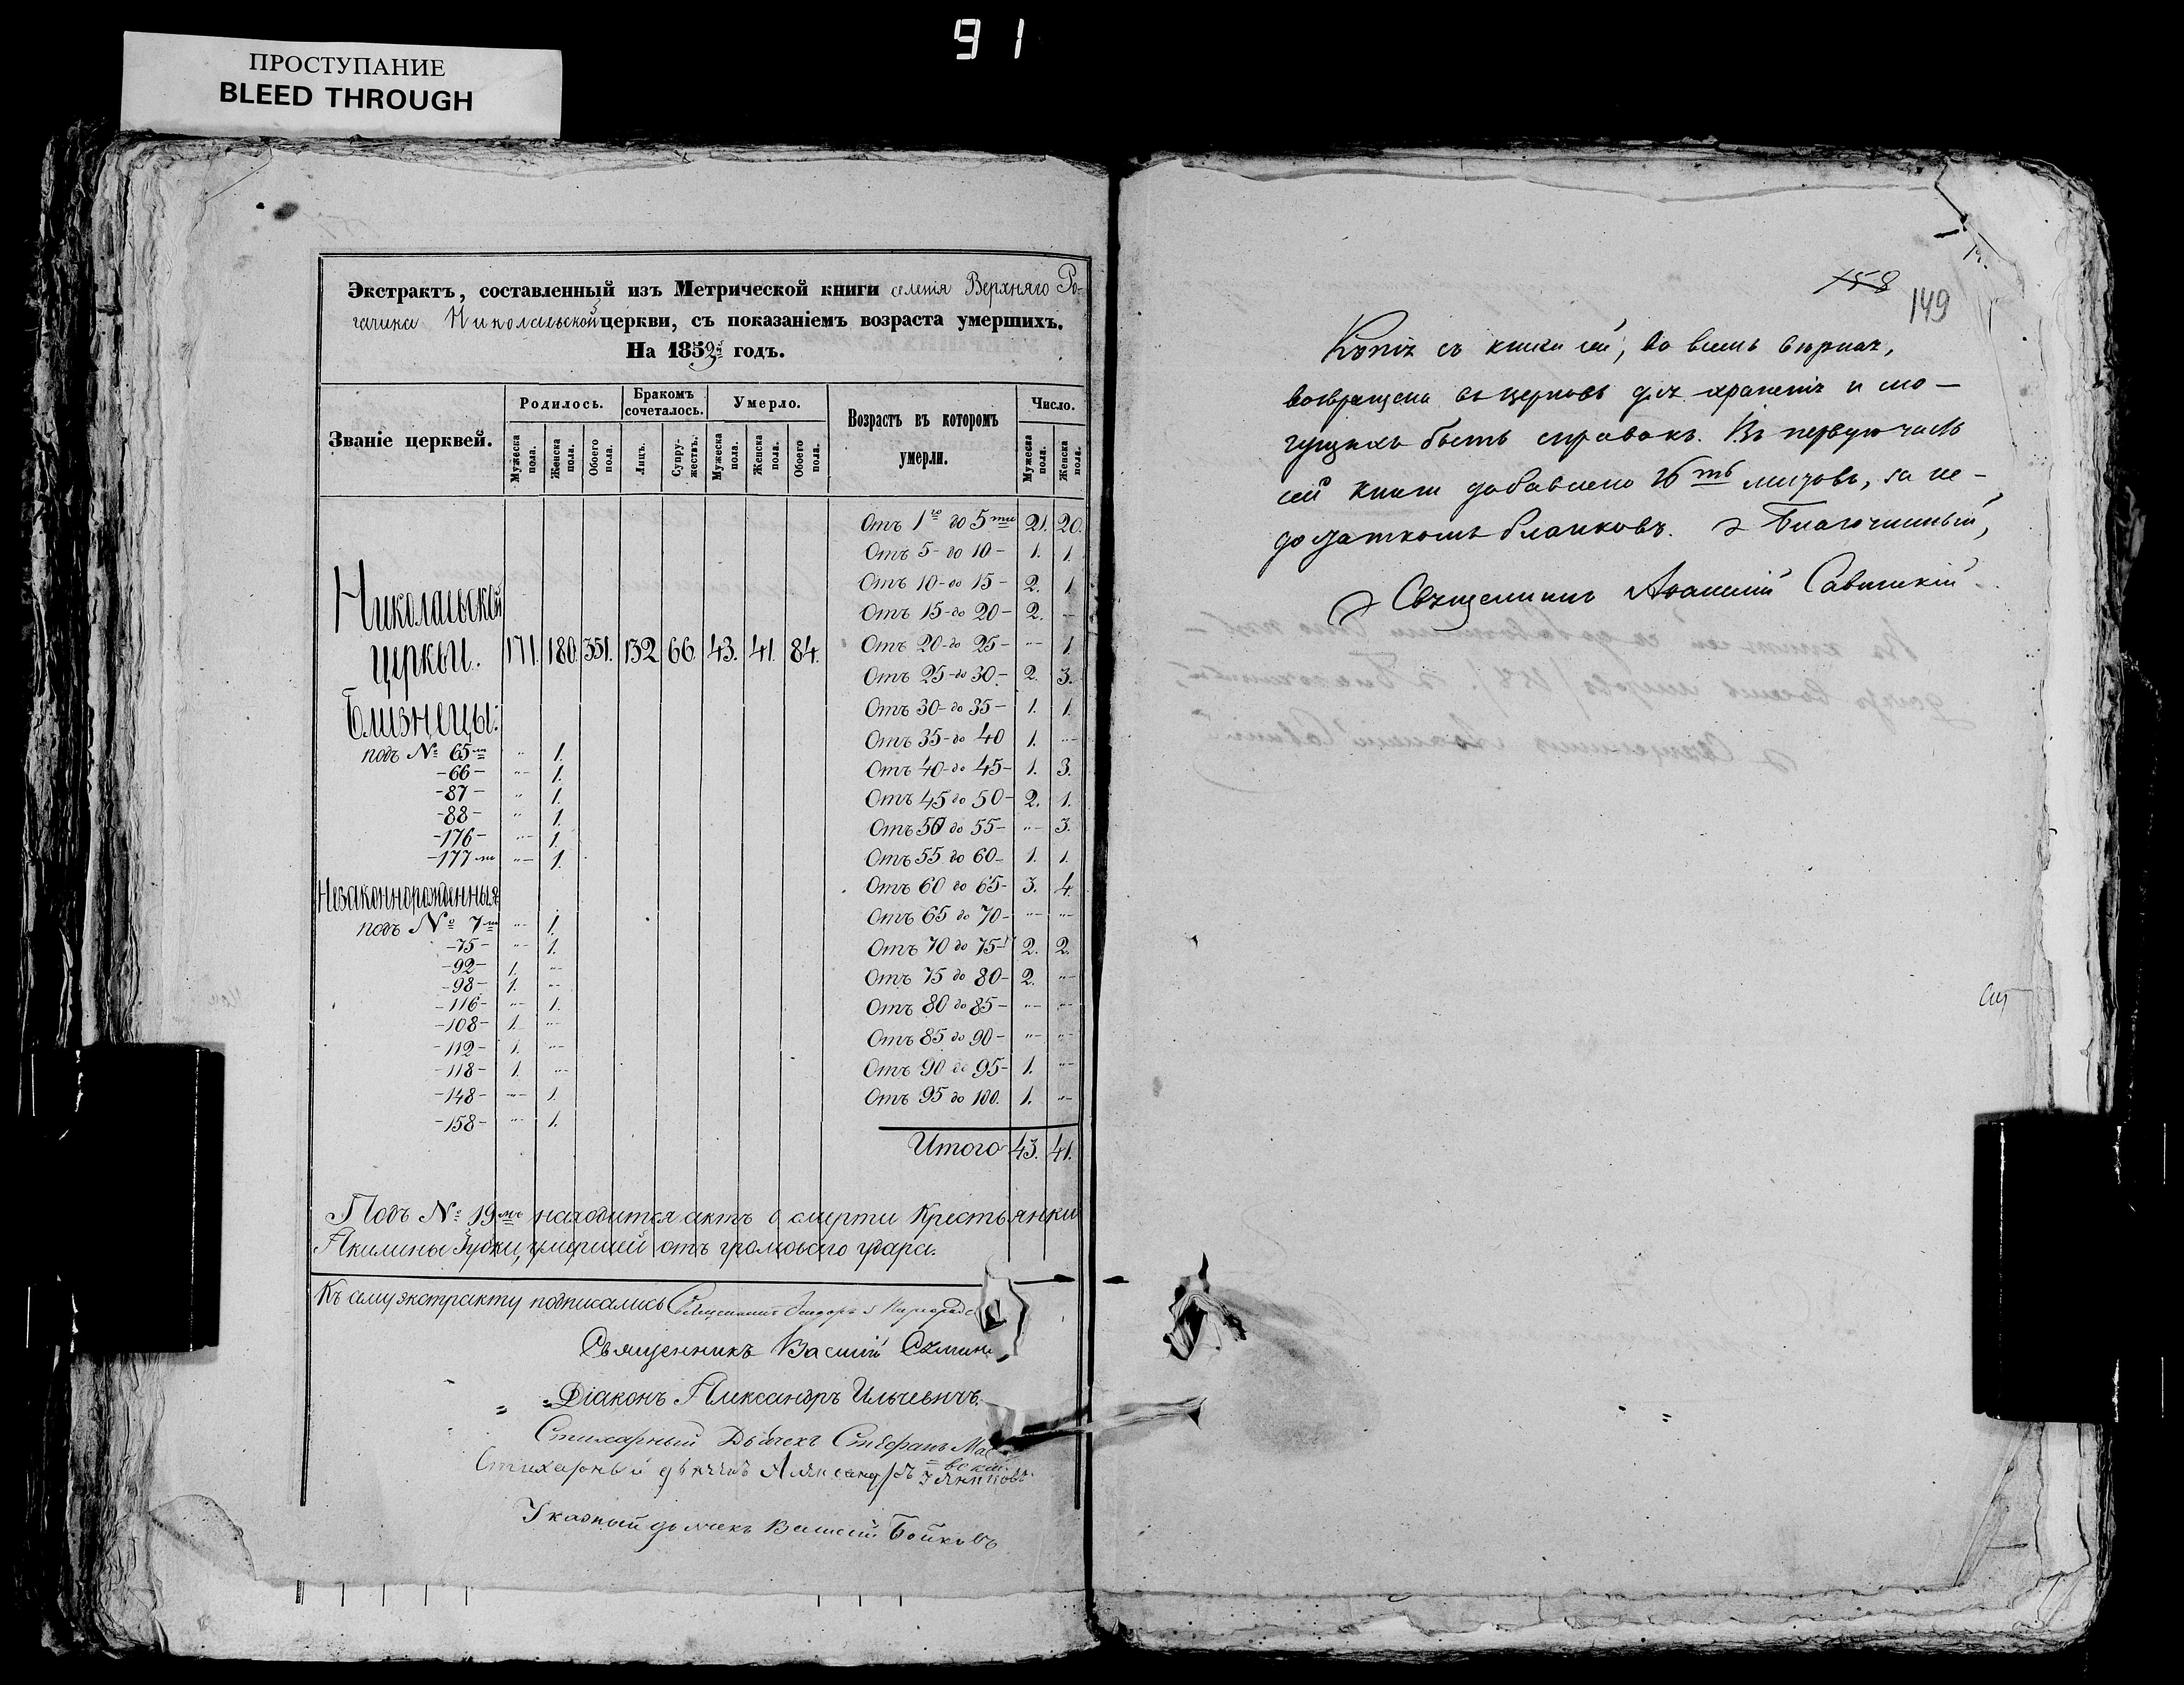 91
ПРОСТУПАНИЕ
BLEED THROUGH
Экстрактъ, составленный изъ Метрической книги селенія Верхняго Ро-
гачика Николаевской церкви, съ показаніемъ возраста умершихъ.
На 1852й годъ.
Званіе церквей.
Родилось.
Бракомъ сочеталось.
Умерло.
Возрастъ въ которомъ умерли.
Число.
Мужеска пола.
Женска пола.
Обоего пола.
Лицъ.
Супружествъ.
Мужеска пола.
Женска пола.
Обоего пола.
Мужеска пола.
Женска пола.
Николаевской
церкви. 171. 180. 351. 132 66. 43. 41. 84.
Близнецы:
подъ № 65м " 1.
-66- " 1.
-87- " 1.
-88- " 1.
-176- " 1.
-177м " 1.
Незаконнорожденныя
подъ № 7м " 1.
-75- " 1.
-92- 1. "
-98- 1. "
-116- " 1.
-108- 1. "
-112- 1. "
-118- 1. "
-148- " 1.
-158- " 1.
Отъ 1го до 5ти 21. 20.
Отъ 5- до 10- 1. 1.
Отъ 10- до 15- 2. 1
Отъ 15- до 20- 2. -
Отъ 20- до 25- " 1.
Отъ 25- до 30- 2. 3.
Отъ 30- до 35- 1. 1.
Отъ 35- до 40 1. "
Отъ 40- до 45- 1. 3.
Отъ 45 до 50- 2. 1.
Отъ 50 до 55- " 3.
Отъ 55 до 60- 1. 1.
Отъ 60 до 65- 3. 4.
Отъ 65 до 70- " "
Отъ 70 до 75- 2. 2.
Отъ 75 до 80- 2. "
Отъ 80 до 85- " "
Отъ 85 до 90- " "
Отъ 90 до 95- 1. "
Отъ 95 до 100. 1. "
Итого 43. 41.
Подъ № 19мъ находится актъ о смерти Крестьянки
Акилины умершей отъ громоваго удара.
Къ сему экстракту подписались Священникъ
Священникъ Василій
Діаконъ Александръ Ильчевичъ.
Стихарный Дьячекъ Стефанъ
Стихарный дьячекъ Александръ
Указный дьячекъ Василій Бойковъ
158
149
Копія съ книги сей, во всемъ вѣрная,
возвращена въ церковь для храненія и мо-
гущихъ быть справокъ. Въ первую часть
сей книги добавлено 26ть листовъ, за не-
достаткомъ бланковъ. Благочинный,
Священникъ Аѳанасій Савицкій